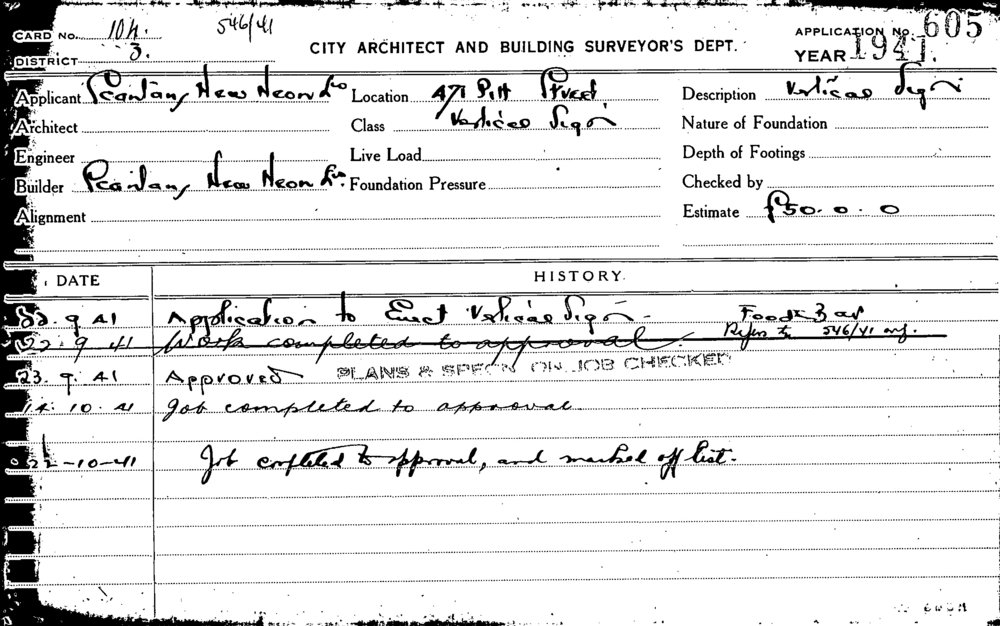 CARD No. 104. 546/41 APPLICATION No. 605
DISTRICT 3. CITY ARCHITECT AND BUILDING SURVEYOR'S DEPT. YEAR 1941.
Applicant New Neon Location 471 Pitt Street Description Vertical Sign
Architect Class Vertical Sign Nature of Foundation
Engineer Live Load Depth of Footings
Builder New Neon Foundation Pressure Checked by
Alignment Estimate £50. 0. 0
DATE HISTORY.
22. 9 41 Application to Erect Vertical Sign - Food Bar
22. 9. 41 Work completed to approval Refer to 546/41
23. 9. 41 Approved PLANS & SPECN ON JOB CHECKED
14. 10. 41 Job completed to approval
22-10-41 Job completed to approval, and marked off list.